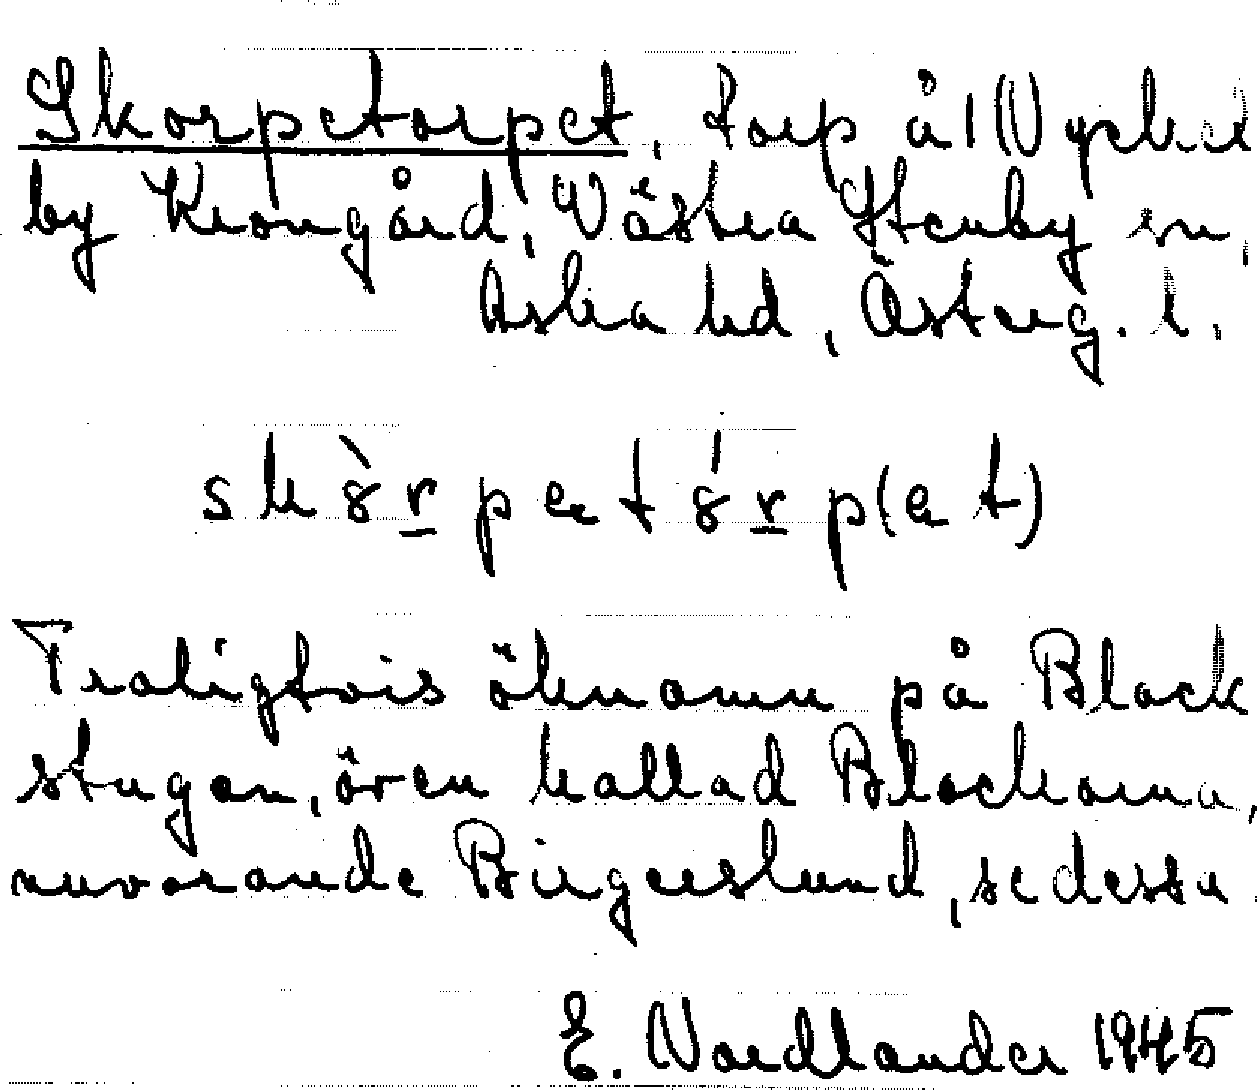 Skorpetorpet, torp å 1 Nyckel
by Krongård, Västra Stenby sn,
Aska hd, Österg. l.
skȣ̀rpetȣ́rp(et)
Troligtvis öknamn på Block
stugan, även kallad Blockarna,
nuvarande Birgerslund, se dessa.
E. Nordlander 1945